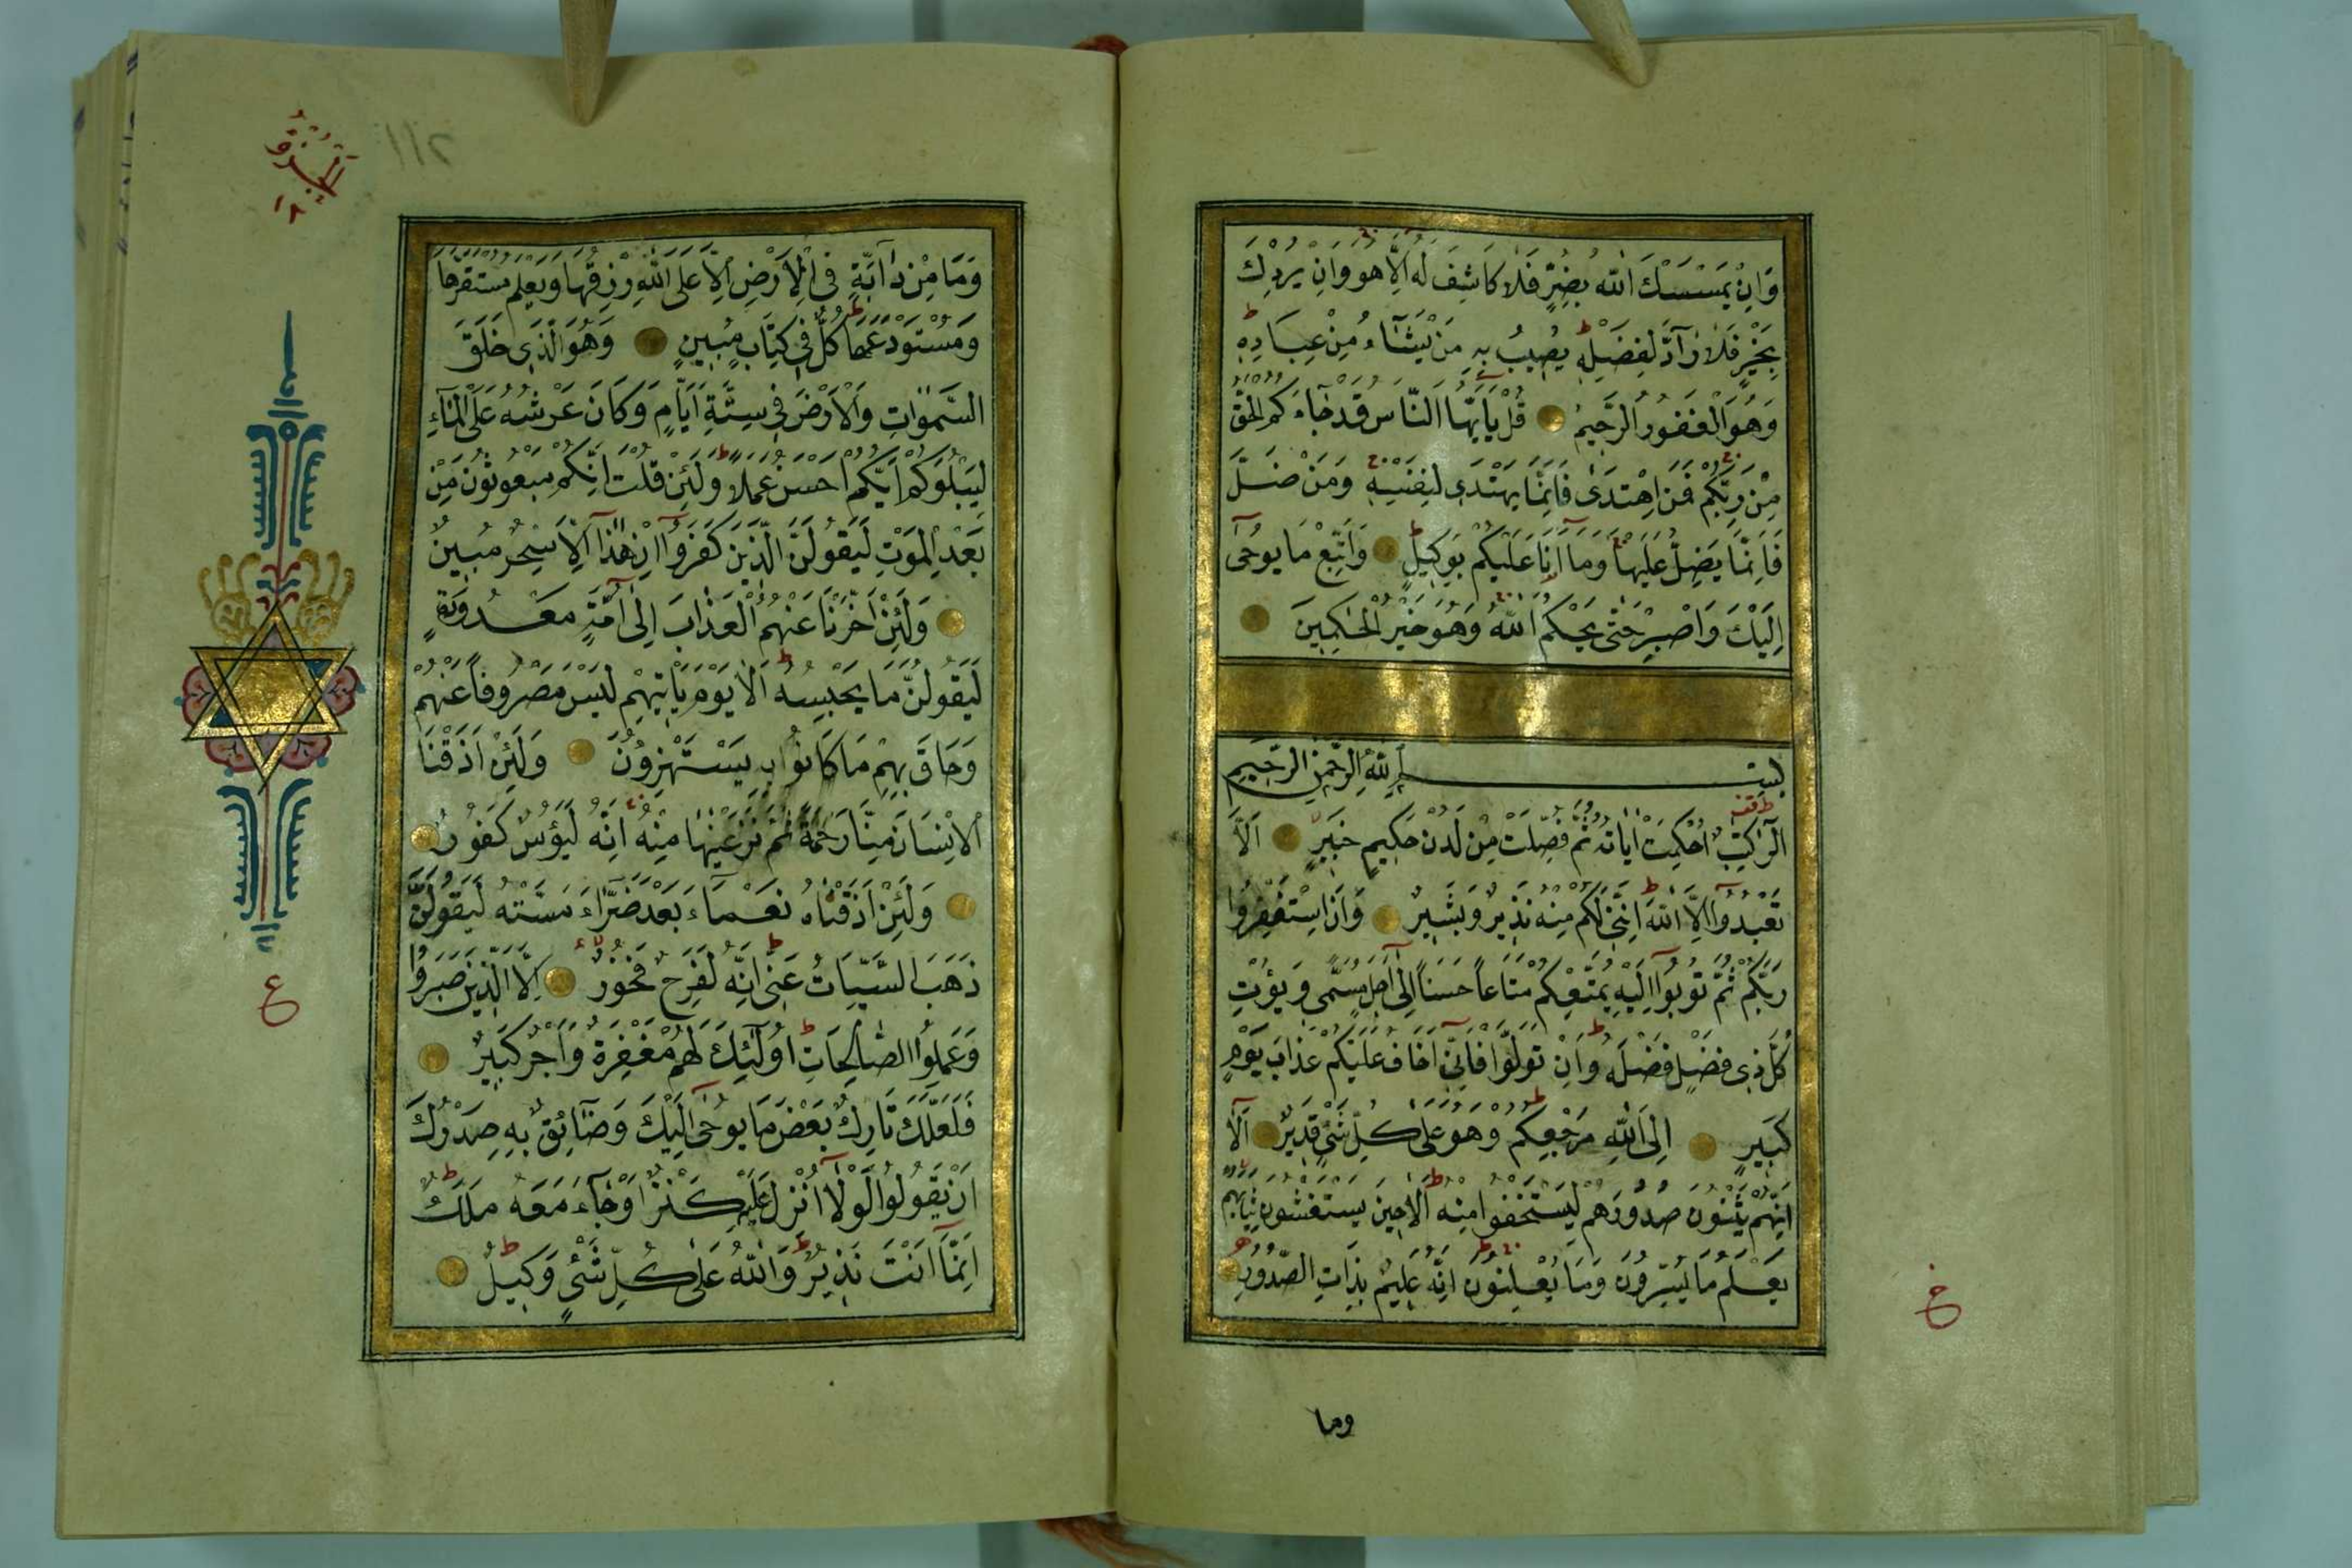 وَاِنْ يَمْسَسْكَ اللّٰهُ بِضُرٍّ فَلَا كَاشِفَ لَهُ اِلَّا هُوَ وَاِنْ يُرِدْكَ
بِخَيْرٍ فَلَا رَآدَّ لِفَضْلِهِ يُصِيبُ بِهِ مَنْ يَشَٓاءُ مِنْ عِبَادِهِ
وَهُوَ الْغَفُورُ الرَّحِيمُ قُلْ يَا اَيُّهَا النَّاسُ قَدْ جَٓاءَكُمُ الْحَقُّ
مِنْ رَبِّكُمْ فَمَنِ اهْتَدٰى فَاِنَّمَا يَهْتَدِى لِنَفْسِهِ وَمَنْ ضَلَّ
فَاِنَّمَا يَضِلُّ عَلَيْهَا وَمَٓا اَنَا عَلَيْكُمْ بِوَكِيلٍ وَاتَّبِعْ مَا يُوحٰٓى
اِلَيْكَ وَاصْبِرْ حَتّٰى يَحْكُمَ اللّٰهُ وَهُوَ خَيْرُ الْحٰكِمِينَ
بِسْمِ اللّٰهِ الرَّحْمٰنِ الرَّحِيمِ
الٓرٰ كِتَابٌ اُحْكِمَتْ اٰيَاتُهُ ثُمَّ فُصِّلَتْ مِنْ لَدُنْ حَكِيمٍ خَبِيرٍ اَلَّا
تَعْبُدُٓوا اِلَّا اللّٰهَ اِنَّنِى لَكُمْ مِنْهُ نَذِيرٌ وَبَشِيرٌ وَاَنِ اسْتَغْفِرُوا
رَبَّكُمْ ثُمَّ تُوبُٓوا اِلَيْهِ يُمَتِّعْكُمْ مَتَاعاً حَسَناً اِلٰٓى اَجَلٍ مُسَمًّى وَيُؤْتِ
كُلَّ ذِى فَضْلٍ فَضْلَهُ وَاِنْ تَوَلَّوْا فَاِنِّٓى اَخَافُ عَلَيْكُمْ عَذَابَ يَوْمٍ
كَبِيرٍ اِلَى اللّٰهِ مَرْجِعُكُمْ وَهُوَ عَلٰى كُلِّ شَىْءٍ قَدِيرٌ اَلَٓا
اِنَّهُمْ يَثْنُونَ صُدُورَهُمْ لِيَسْتَخْفُوا مِنْهُ اَلَا حِينَ يَسْتَغْشُونَ ثِيَابَهُمْ
يَعْلَمُ مَا يُسِرُّونَ وَمَا يُعْلِنُونَ اِنَّهُ عَلِيمٌ بِذَاتِ الصُّدُورِ
خ
وما
٢١١
الجزؤ
١٢
وَمَا مِنْ دَٓابَّةٍ فِى الْاَرْضِ اِلَّا عَلَى اللّٰهِ رِزْقُهَا وَيَعْلَمُ مُسْتَقَرَّهَا
وَمُسْتَوْدَعَهَا كُلٌّ فِى كِتَابٍ مُبِينٍ وَهُوَ الَّذِى خَلَقَ
السَّمٰوَاتِ وَالْاَرْضَ فِى سِتَّةِ اَيَّامٍ وَكَانَ عَرْشُهُ عَلَى الْمَٓاءِ
لِيَبْلُوَكُمْ اَيُّكُمْ اَحْسَنُ عَمَلاً وَلَئِنْ قُلْتَ اِنَّكُمْ مَبْعُوثُونَ مِنْ
بَعْدِ الْمَوْتِ لَيَقُولَنَّ الَّذِينَ كَفَرُٓوا اِنْ هٰذَٓا اِلَّا سِحْرٌ مُبِينٌ
وَلَئِنْ اَخَّرْنَا عَنْهُمُ الْعَذَابَ اِلٰٓى اُمَّةٍ مَعْدُودَةٍ
لَيَقُولُنَّ مَا يَحْبِسُهُ اَلَا يَوْمَ يَاْتِيهِمْ لَيْسَ مَصْرُوفاً عَنْهُمْ
وَحَاقَ بِهِمْ مَا كَانُوا بِهِ يَسْتَهْزِؤُنَ وَلَئِنْ اَذَقْنَا
الْاِنْسَانَ مِنَّا رَحْمَةً ثُمَّ نَزَعْنَاهَا مِنْهُ اِنَّهُ لَيَؤُسٌ كَفُورٌ
وَلَئِنْ اَذَقْنَاهُ نَعْمَٓاءَ بَعْدَ ضَرَّٓاءَ مَسَّتْهُ لَيَقُولَنَّ
ذَهَبَ السَّيِّئَاتُ عَنِّى اِنَّهُ لَفَرِحٌ فَخُورٌ اِلَّا الَّذِينَ صَبَرُوا
وَعَمِلُوا الصَّالِحَاتِ اُولٰٓئِكَ لَهُمْ مَغْفِرَةٌ وَاَجْرٌ كَبِيرٌ
فَلَعَلَّكَ تَارِكٌ بَعْضَ مَا يُوحٰٓى اِلَيْكَ وَضَٓائِقٌ بِهِ صَدْرُكَ
اَنْ يَقُولُوا لَوْلَٓا اُنْزِلَ عَلَيْهِ كَنْزٌ اَوْ جَٓاءَ مَعَهُ مَلَكٌ
اِنَّمَٓا اَنْتَ نَذِيرٌ وَاللّٰهُ عَلٰى كُلِّ شَىْءٍ وَكِيلٌ
ع